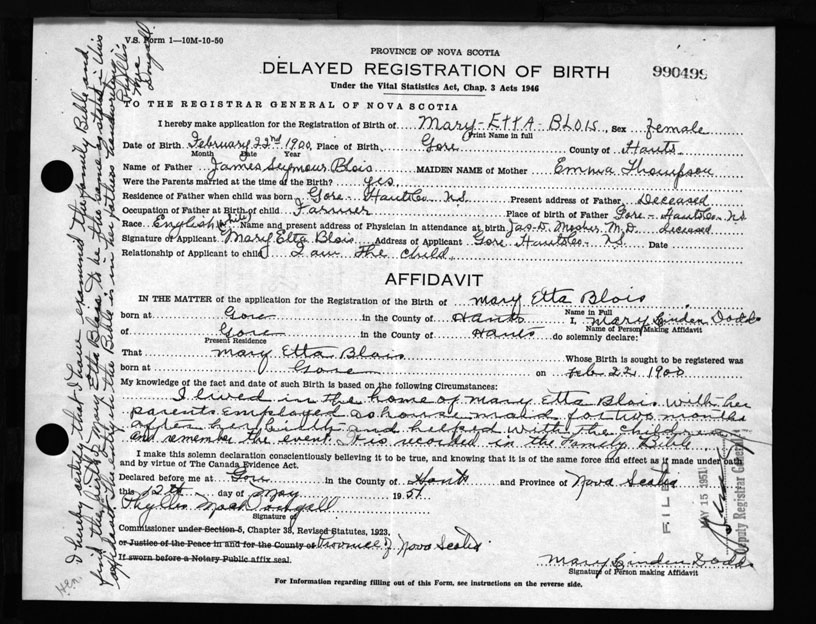 V.S. Form 1—10M-10-50
PROVINCE OF NOVA SCOTIA
DELAYED REGISTRATION OF BIRTH
990499
Under the Vital Statistics Act, Chap. 3 Acts 1946
TO THE REGISTRAR GENERAL OF NOVA SCOTIA
I hereby make application for the Registration of Birth of Mary-Etta-Blois, Sex female
Print Name in full
Date of Birth February 22nd 1900 Place of Birth Gore County of Hants
Month Date Year
Name of Father James Seymour Blois MAIDEN NAME of Mother Emma Thompson
Were the Parents married at the time of the Birth? yes
Residence of Father when child was born Gore - Hants Co. N.S. Present address of Father Deceased
Occupation of Father at Birth of child Farmer Place of birth of Father Gore - Hants Co. N.S
Race English (White) Name and present address of Physician in attendance at birth Jas. D. Mosher M.D. deceased
Signature of Applicant Mary Etta Blois Address of Applicant Gore Hants Co - N.S. Date
Relationship of Applicant to child I am the child
AFFIDAVIT
IN THE MATTER of the application for the Registration of the Birth of Mary Etta Blois
Name in Full
born at Gore in the County of Hants I, Mary Linden Dodd
Name of Person Making Affidavit
of Gore in the County of Hants do solemnly declare:
Present Residence
That Mary Etta Blois Whose Birth is sought to be registered was
born at Gore on Feb 22 1900
My knowledge of the fact and date of such Birth is based on the following Circumstances:
I lived in the home of Mary Etta Blois with her
parents Employed as house maid for two months
after her birth and helped with the children
and remember the event. It is recorded in the Family Bible
I make this solemn declaration conscientiously believing it to be true, and knowing that it is of the same force and effect as if made under oath
and by virtue of The Canada Evidence Act.
Declared before me at Gore in the County of Hants and Province of Nova Scotia
this 12th day of May 1951
Phyllis MacDougall
Signature of
Commissioner under Section 5, Chapter 38, Revised Statutes, 1923,
or Justice of the Peace in and for the County of Province of Nova Scotia
If sworn before a Notary Public affix seal.
Mary Linden Dodd
Signature of Person making Affidavit
For Information regarding filling out of this Form, see instructions on the reverse side.
FILED
MAY 15 1951
Deputy Registrar General
I hereby certify that I have examined the family Bible and
find the birth of Mary Etta Blois to be the same as stated in this
affidavit the entry in the Bible is in her father's handwriting
Phyllis
Mac
Dougall